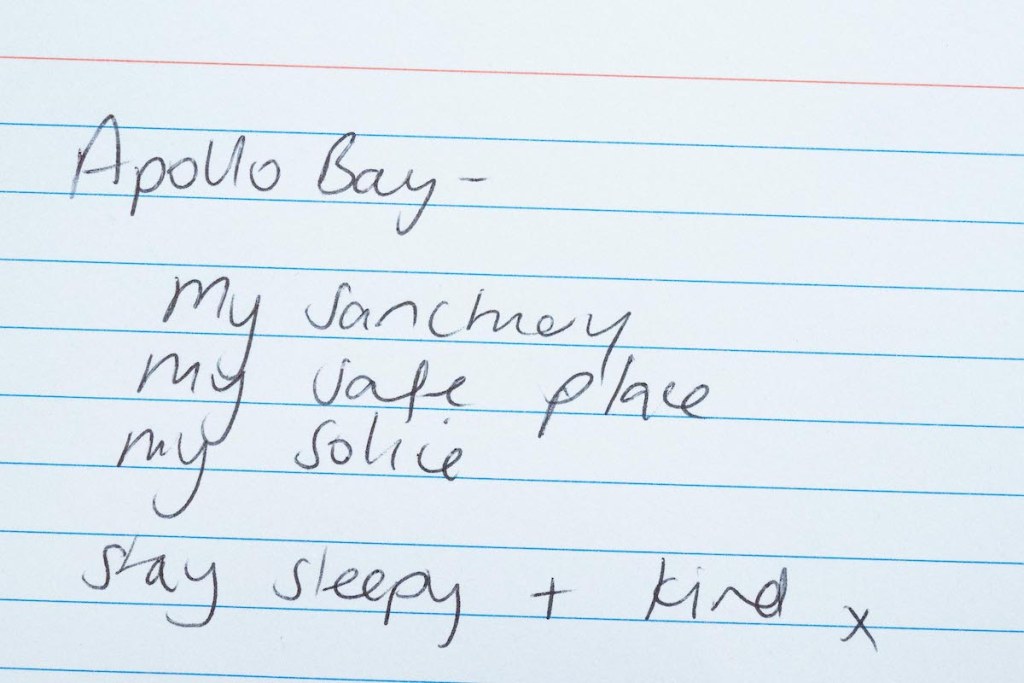 Apollo Bay -
my sanctuary
my safe place
my solice
stay sleepy + kind x